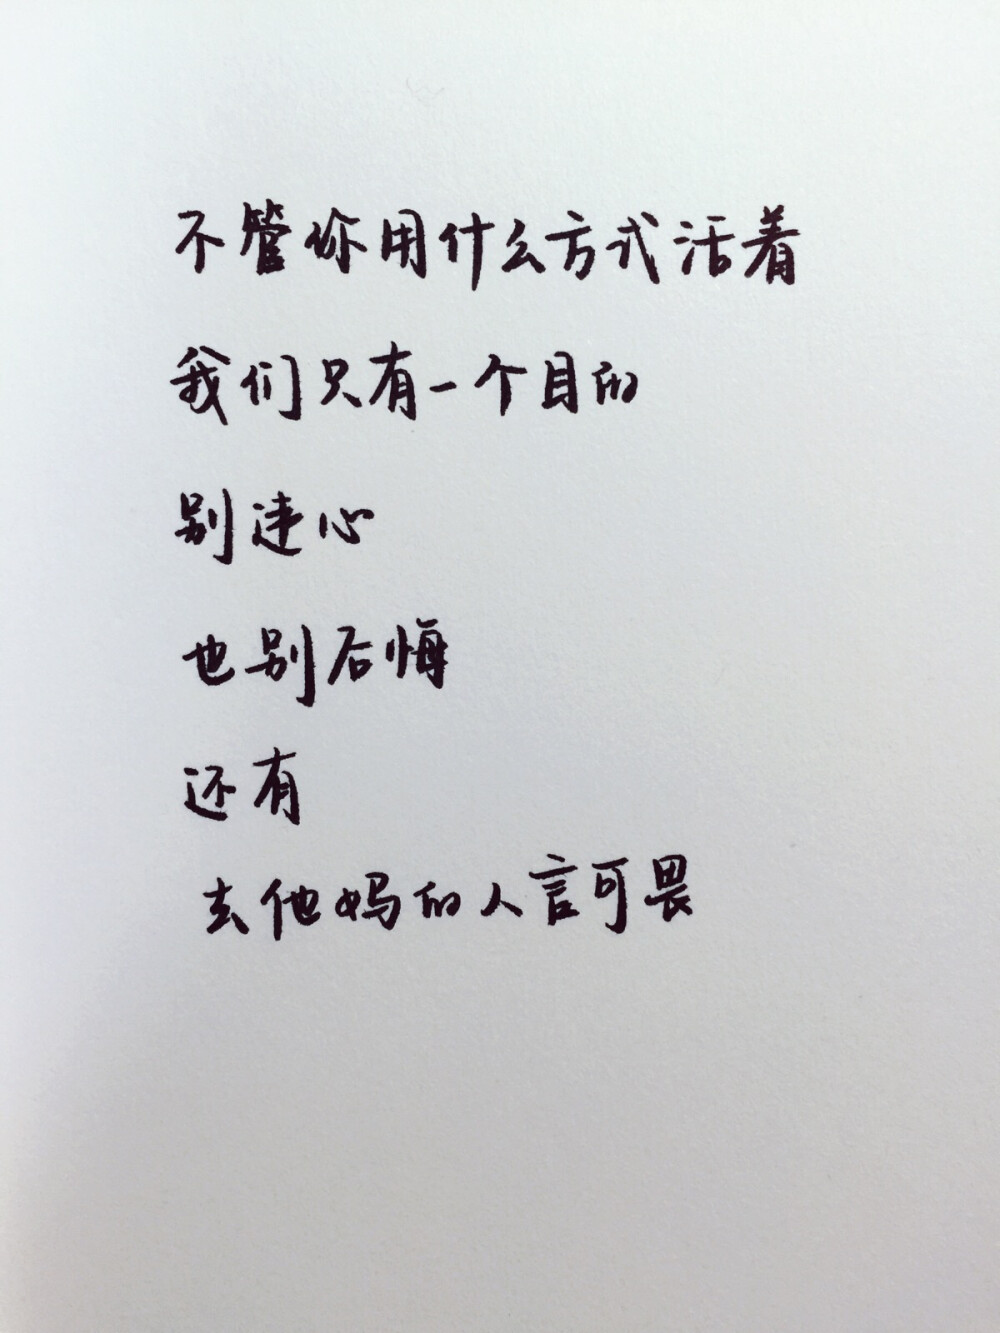 不管你用什么方式活着
我们只有一个目的
别违心
也别后悔
还有
去他妈的人言可畏